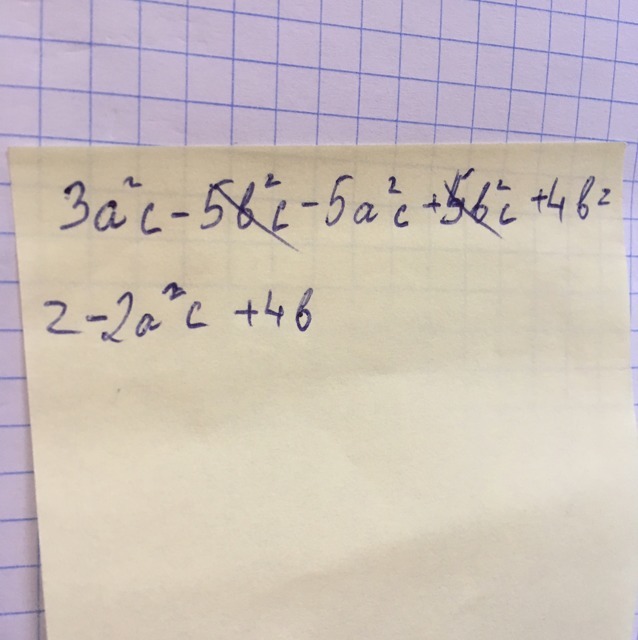 3a²c - 5b²c - 5a²c + 5b²c + 4b²
= -2a²c + 4b